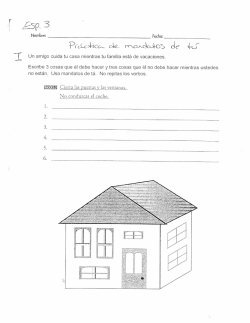 Esp. 3
Nombre: Fecha:
Práctica de mandatos de tú
I Un amigo cuida tu casa mientras tu familia está de vacaciones.
Escribe 3 cosas que él debe hacer y tres cosas que él no debe hacer mientras ustedes
no están. Usa mandatos de tú. No repitas los verbos.
Cierra las puertas y las ventanas.
No conduzcas el coche.
1.
2.
3.
4.
5.
6.